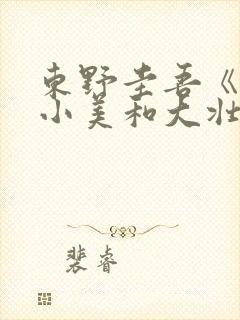 東野圭吾《
小美和大壮
裴睿